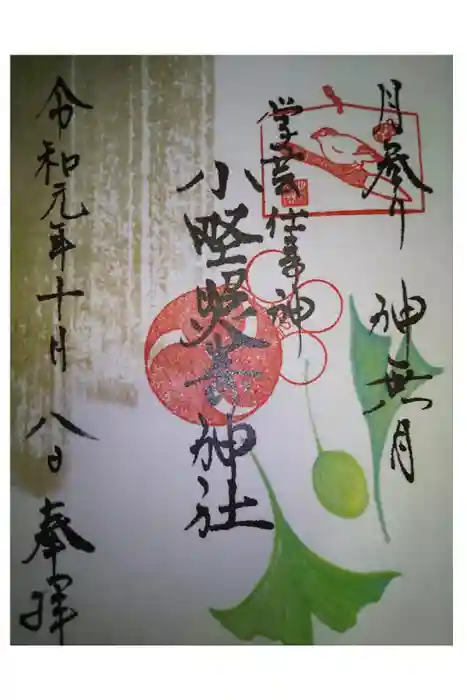 月参り 神無月
学芸仕事神
小野照崎神社
令和元年十月八日 奉拝